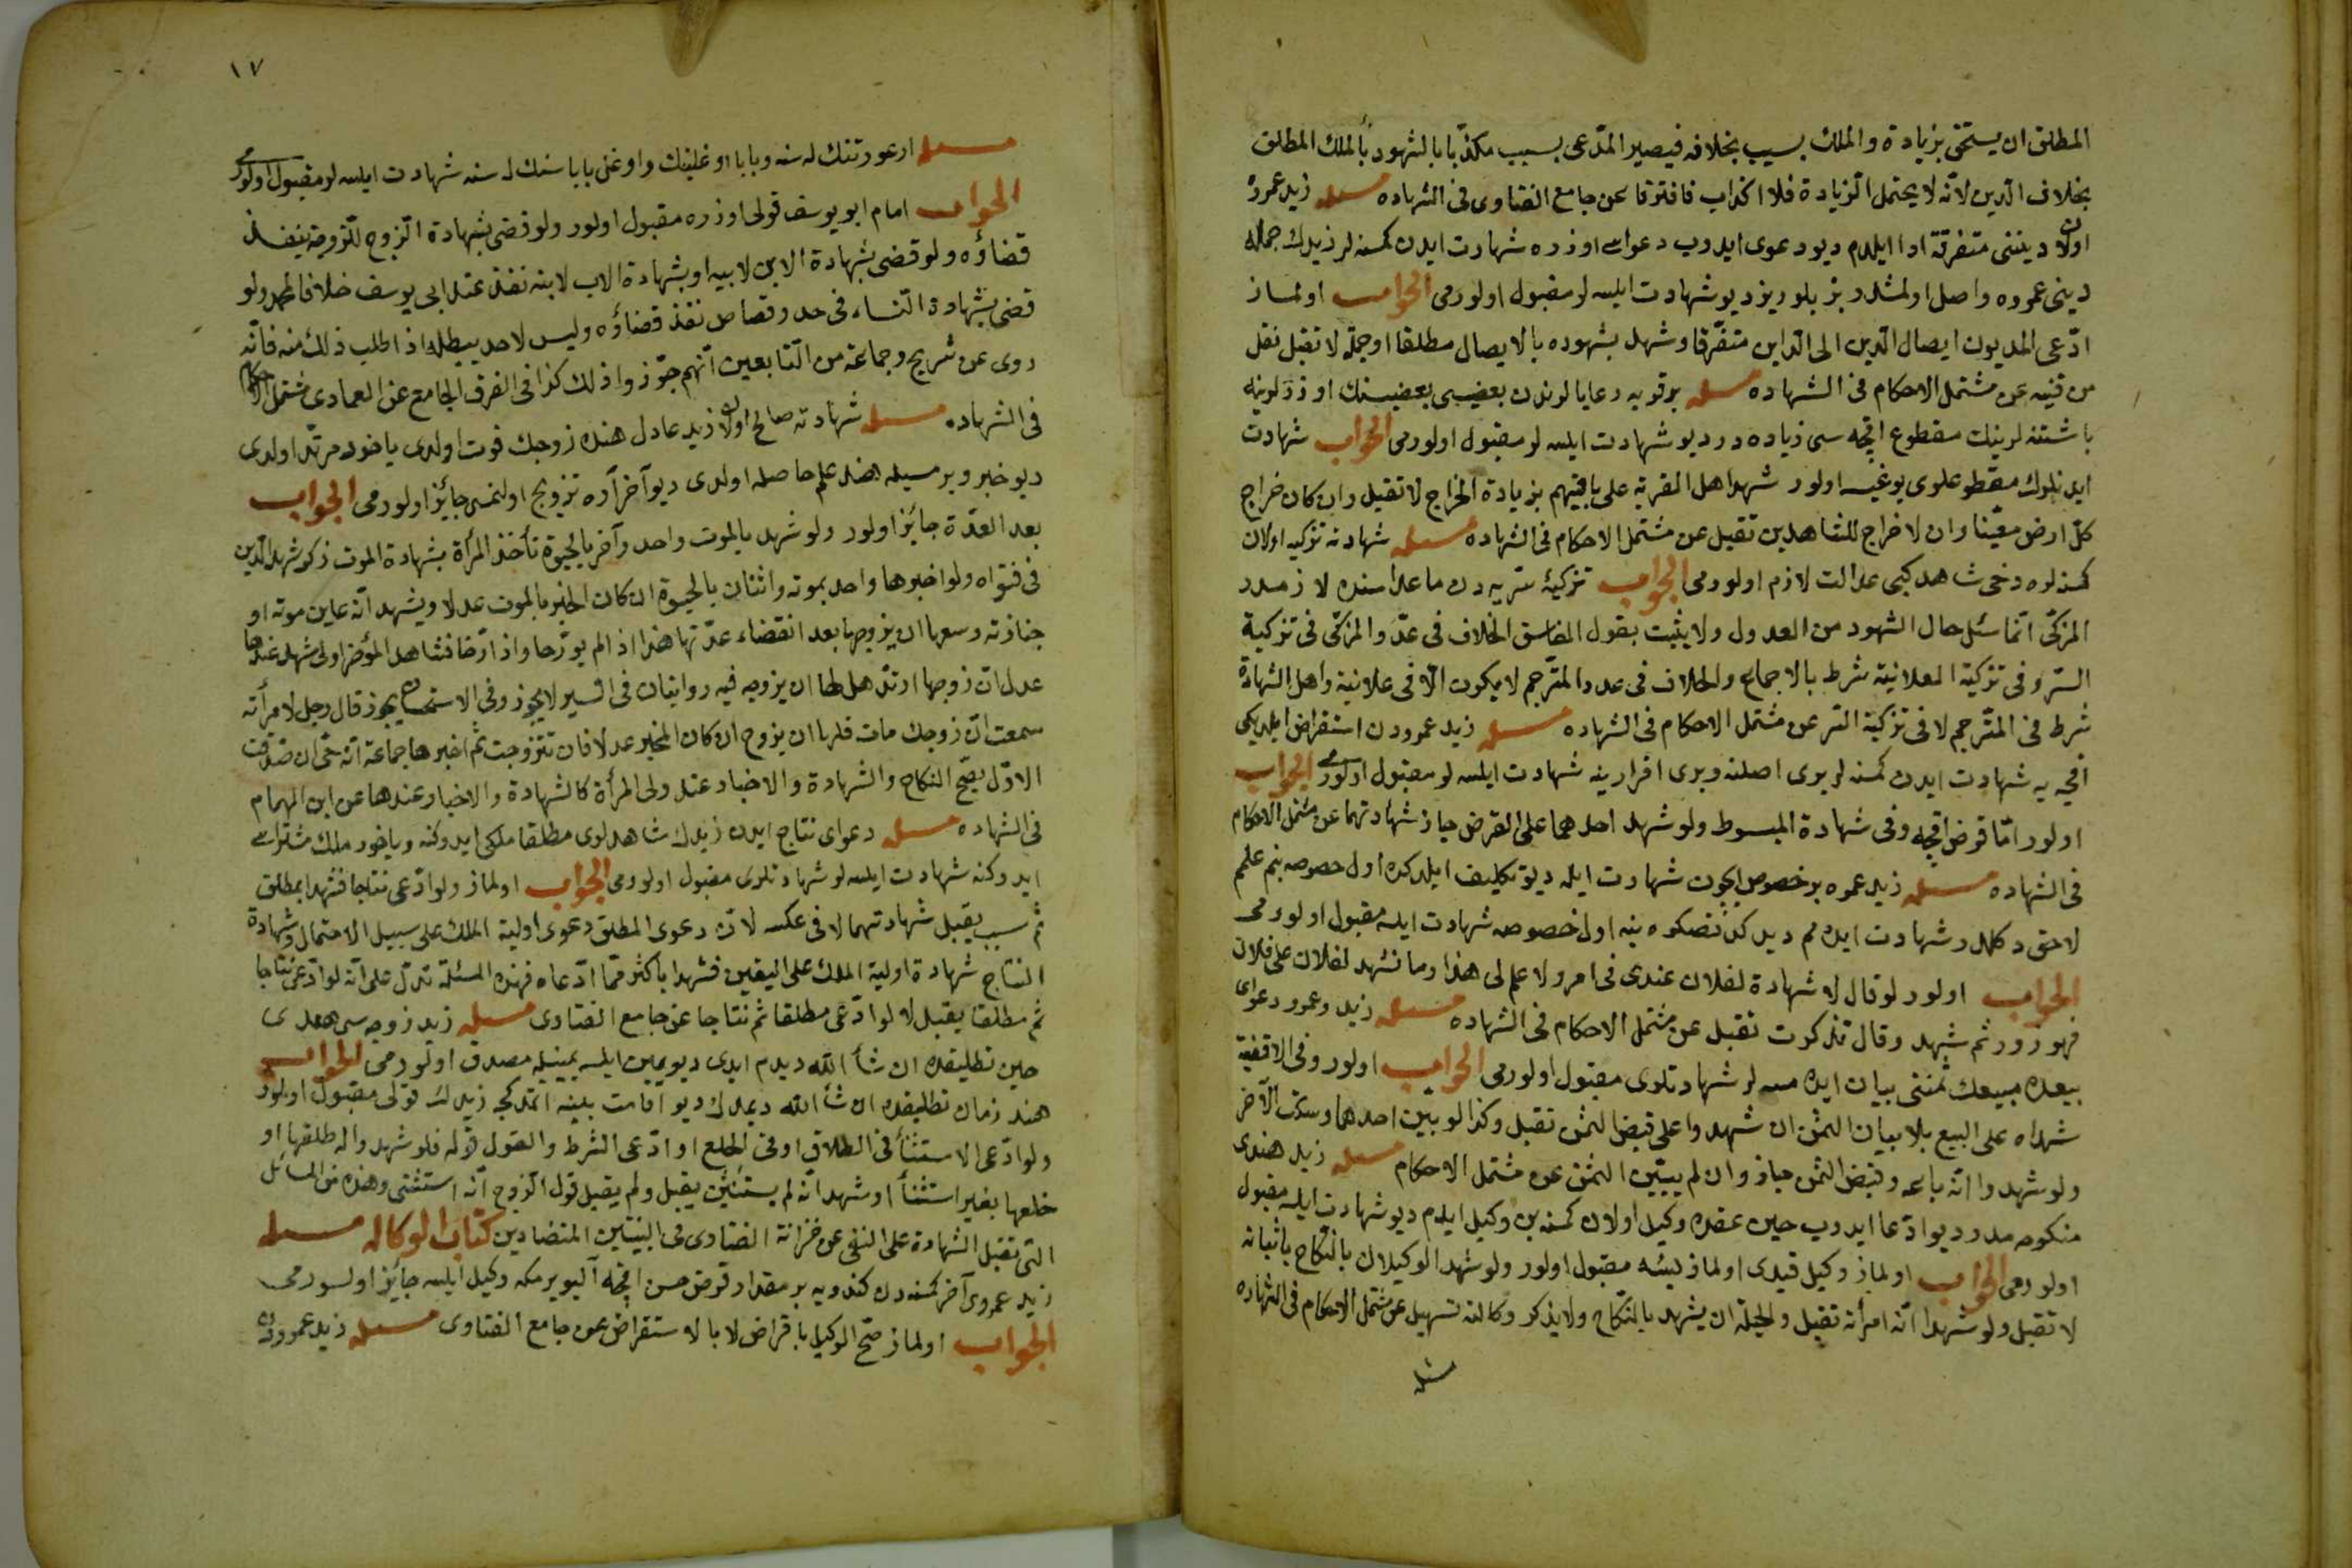 المطلق ان يستحق بزيادة والملك بسبب بخلافه فيصير المدّعى بسبب مكذّبا بالشهود بالملك المطلق
بخلاف الدين لانّه لا يحتمل الزيادة فلا اكذاب فافترقا عن جامع الفتاوى فى الشهاده مسئله زيد عمروه
اولان ديننى متفرقة ادا ايلدم ديو دعوى ايدوب دعواسى اوزره شهادت ايدن كمسنه لر زيدك جمله
دينى عمروه واصل اولمشدر بز بلوريز ديو شهادت ايلسه لر مقبول اولورمى الجواب اولماز
ادّعى المديون ايصال الدين الى الداين متفرّقا وشهد شهوده بالايصال مطلقا او جملة لا تقبل نقل
من قنيه عن مشتمل الاحكام فى الشهاده مسئله بر قريه رعايا لرندن بعضيسى بعضيسنك اوزرلرينه
باشنه لرينك مقطوع اقچه سى زياده در ديو شهادت ايلسه لر مقبول اولورمى الجواب شهادت
ايدنلرك مقطوعلرى يوغيسه اولور شهد اهل القرية على باقيهم بزيادة الخراج لا تقبل وان كان خراج
كلّ ارض معيّنا وان لا خراج للشاهدين تقبل عن مشتمل الاحكام فى الشهاده مسئله شهادته تزكيه اولان
كمسنه لره دخى شاهد كبى عدالت لازم اولورمى الجواب تزكيهٔ سرّيه دن ماعداسنده لازمدر
المزكّى انّما سئل حال الشهود من العدول ولا يثبت بقول الفاسق الخلاف فى عدّ والمزكّى فى تزكية
السرّ وفى تزكية العلانية شرط بالاجماع والخلاف فى عدد المترجم لا يكون الّا فى علانية واهل الشهادة
شرط فى المترجم لا فى تزكية السّر عن مشتمل الاحكام فى الشهاده مسئله زيد عمرودن استقراض ايلديكى
اقچه يه شهادت ايدن كمسنه لر برى اصلنه وبرى اقرارينه شهادت ايلسه لر مقبول اولورمى الجواب
اولور امّا قرض اقچه وفى شهادة المبسوط ولو شهد احدهما على القرض جاز شهادتهما عن مشتمل الاحكام
فى الشهاده مسئله زيد عمروه بر خصوص ايچون شهادت ايله ديو تكليف ايلدكده اول خصوصه بنم علمم
لاحق دكلدر شهادت ايده مم ديدكدنصكره ينه اول خصوصه شهادت ايلسه مقبول اولورمى
الجواب اولور لو قال لا شهادة لفلان عندى فى امر ولا علم لى هذا وما نشهد لفلان على فلان
فهو زور ثم شهد وقال تذكرت تقبل عن مشتمل الاحكام فى الشهاده مسئله زيد وعمرو دعواى
بيعده مبيعك ثمننى بيان ايده مسه لر شهادتلرى مقبول اولورمى الجواب اولور وفى الاقضية
شهداه على البيع بلا بيان الثمن ان شهدوا على قبض الثمن تقبل وكذا لو بيّن احدهما وسكت الآخر
ولو شهدوا انّه باعه وقبض الثمن جاز وان لم يبيّن الثمن عن مشتمل الاحكام مسئله زيد هندى
منكوحه مدر ديو ادّعا ايدوب حين عقده وكيل اولان كمسنه بن وكيل ايدم ديو شهادت ايلسه مقبول
اولورمى الجواب اولماز وكيل قيدى اولمازيسه مقبول اولور ولو شهد الوكيلان بالنّكاح باثباته
لا تقبل ولو شهدا انّه امرأته تقبل والحيلة ان يشهد بالنّكاح ولا يذكر وكالته تسهيل عن مشتمل الاحكام فى الشهاده
مسئله
١٧
مسئله ار عورتنك لهنه وبابا اوغلينك واوغل باباسنك لهنه شهادت ايلسه لر مقبول اولورمى
الجواب امام ابو يوسف قولى اوزره مقبول اولور ولو قضى بشهادة الزوج للزوجة ينفذ
قضاؤه ولو قضى بشهادة الابن لابيه او بشهادة الاب لابنه نفذ عند ابى يوسف خلافا لمحمد ولو
قضى بشهادة النساء فى حد وقصاص نفذ قضاؤه وليس لاحد يبطله اذا طلب ذلك منه فانّه
روى عن شريح وجماعة من التابعين انّهم جوّزوا ذلك كذا فى الفرق الجامع عن العمادى مشتمل الاحكام
فى الشهاده مسئله شهادته صالح اولان زيد عادل هنده زوجك فوت اولدى ياخود مرتدّ اولدى
ديو خبر ويرميله هنده علم حاصل اولدى ديو آخر اره تزويج اولنمسى جائز اولورمى الجواب
بعد العدّة جائز اولور ولو شهد بالموت واحد وآخر بالحيوة تأخذ المرأة بشهادة الموت ذكر شهد الدين
فى فتواه ولو اخبرها واحد بموته واثنان بالحيوة ان كان المخبر بالموت عدلا ويشهد انّه عاين موته او
جنازته وسعها ان يزوجها بعد انقضاء عدّتها هذا اذا لم يورّخا واذا ارّخا فشاهد المؤخر اولى شهد عندها
عدل انّ زوجها ارتدّ هل لها ان يزوجه فيه روايتان فى السير لا يجوز وفى الاستحسان يجوز قال رجل لامرأته
سمعت انّ زوجك مات فلها ان يزوج ان كان المخبر عدلا فان تتزوجت ثم اخبرها جماعة انّه حىّ ان صدّقت
الاوّل يصحّ النكاح والشهادة والاخبار عند ولى المرأة كالشهادة والاخبار عندها عن ابن الهمام
فى الشهاده مسئله دعواى نتاج ايدن زيدك شاهدلرى مطلقا ملكى ايدوكنه وياخود ملك مشتراسى
ايدوكنه شهادت ايلسه لر شهادتلرى مقبول اولورمى الجواب اولماز ولو ادّعى نتاجا فشهدا بمطلق
ثم سبب يقبل شهادتهما لا فى عكسه لانّ دعوى المطلق دعوى اولية الملك على سبيل الاحتمال وشهادة
النتاج شهادة اولية الملك على اليقين فشهدا باكثر ممّا ادّعاه فهذه المسئلة تدلّ على انّه لو ادّعى نتاجا
ثم مطلقا يقبل لا لو ادّعى مطلقا ثم نتاجا عن جامع الفتاوى مسئله زيد زوجه سى هندى
حين تطليقده ان شأ الله ديدم ايدى ديو يمين ايلسه يمينيله مصدق اولورمى الجواب
هند زمان تطليقده ان شأ الله ديمدك ديو اقامت بيّنه ايتمدكجه زيدك قولى مقبول اولور
ولو ادّعى الاستثنأ فى الطلاق او فى الخلع او ادّعى الشرط والقول قوله فلو شهدوا انه طلقها او
خلعها بغير استثنأ او شهد انّه لم يستثن يقبل ولم يقبل قول الزوج انّه استثنى وهذه من المسائل
التى تقبل الشهادة على النفى عن خزانة الفتاوى فى البينتين المتضادين كتاب الوكاله مسئله
زيد عمروى آخر كمسنه دن كندويه بر مقدار قرض حسن اقچه آليويرمكه وكيل ايلسه جائز اولورمى
الجواب اولماز صحّ الوكيل باقراض لا بالاستقراض عن جامع الفتاوى مسئله زيد عمرودن